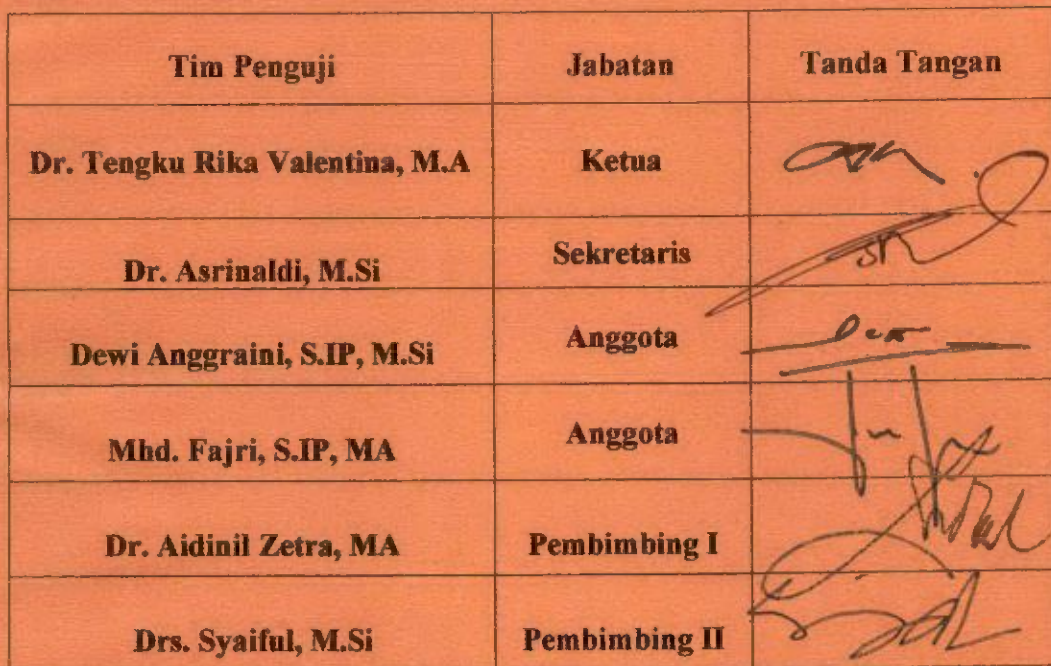 Tim Penguji Jabatan Tanda Tangan
Dr. Tengku Rika Valentina, M.A Ketua
Dr. Asrinaldi, M.Si Sekretaris
Dewi Anggraini, S.IP, M.Si Anggota
Mhd. Fajri, S.IP, MA Anggota
Dr. Aidinil Zetra, MA Pembimbing I
Drs. Syaiful, M.Si Pembimbing II